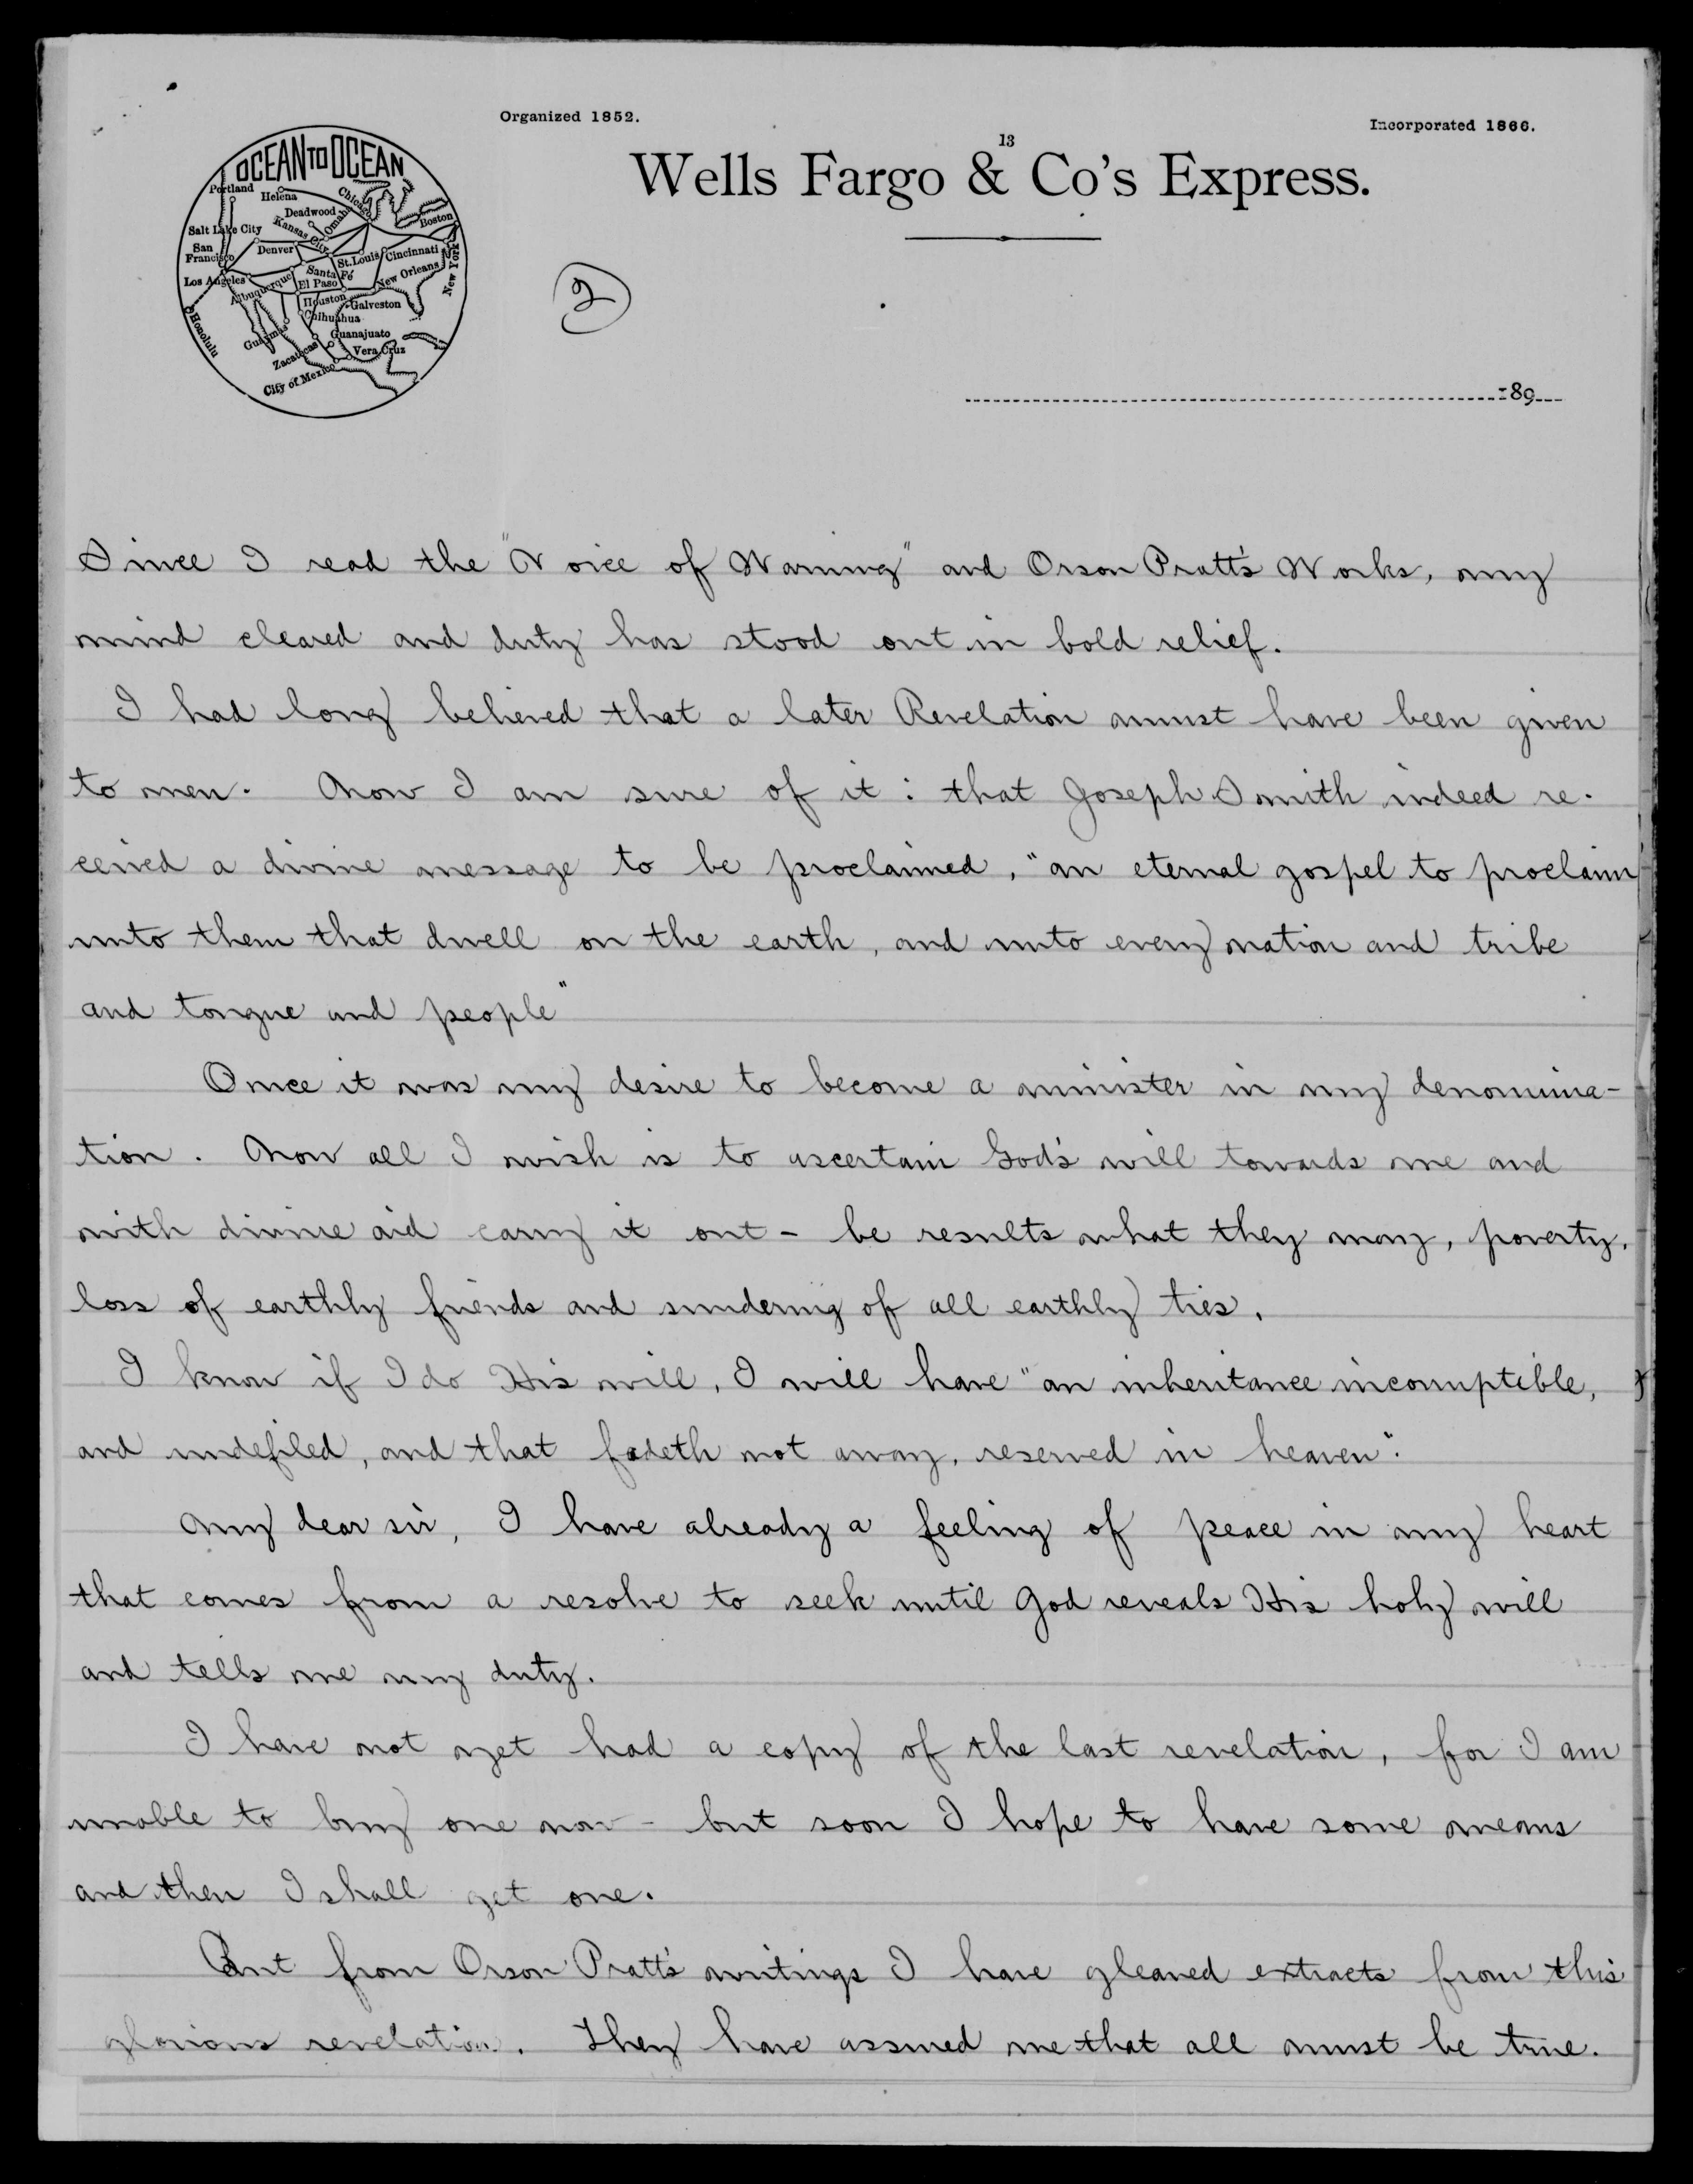 Organized 1852.
Incorporated 1866.
13
Wells Fargo & Co's Express.
OCEAN TO OCEAN
Portland
Helena
Chicago
Deadwood
Omaha
Boston
Salt Lake City
Kansas City
San Francisco
Denver
St. Louis
Cincinnati
New York
Los Angeles
Albuquerque
Santa Fé
El Paso
New Orleans
Houston
Galveston
Chihuahua
Honolulu
Guaymas
Guanajuato
Zacatecas
Vera Cruz
City of Mexico
2
189
Since I read the "Voice of Warning" and Orson Pratt's Works, my
mind cleared and duty has stood out in bold relief.
I had long believed that a later Revelation must have been given
to men. Now I am sure of it: that Joseph Smith indeed re-
ceived a divine message to be proclaimed, "an eternal gospel to proclaim
unto them that dwell on the earth, and unto every nation and tribe
and tongue and people"
Once it was my desire to become a minister in my denomina-
tion. Now all I wish is to ascertain God's will towards me and
with divine aid carry it out - be results what they may, poverty,
loss of earthly friends and sundering of all earthly ties.
I know if I do His will, I will have "an inheritance incorruptible,
and undefiled, and that fadeth not away, reserved in heaven".
My dear sir, I have already a feeling of peace in my heart
that comes from a resolve to seek until God reveals His holy will
and tells me my duty.
I have not yet had a copy of the last revelation, for I am
unable to buy one now - but soon I hope to have some means
and then I shall get one.
But from Orson Pratt's writings I have gleaned extracts from this
glorious revelation. They have assured me that all must be true.